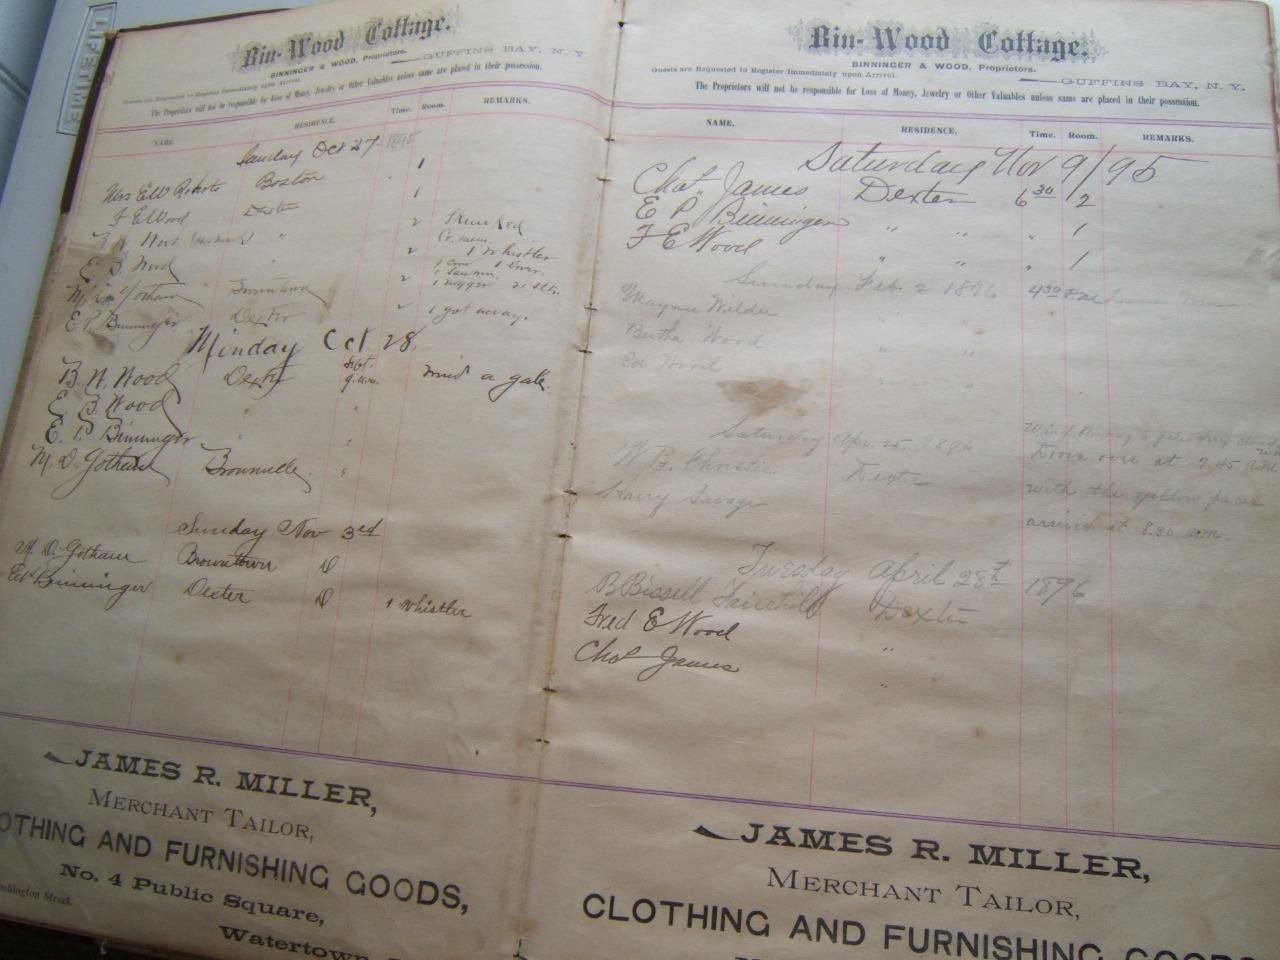 LIFETIME
Bin-Wood Cottage.
BINNINGER & WOOD, Proprietors.
GUFFINS BAY, N. Y.
Guests are Requested to Register Immediately upon Arrival.
The Proprietors will not be responsible for Loss of Money, Jewelry or Other Valuables unless same are placed in their possession.
NAME. RESIDENCE. Time. Room. REMARKS.
Sunday Oct 27 1895
Mrs E W Roberts Boston 1
F E Wood Dexter 1
Wood " 2 Skunked
E. B. Wood " 2 1 Whistler
M. D. Gotham Browntown 2
E P Binninger Dexter 2 1 got away.
Minday Oct 28,
B. W. Wood Dexter 9. a.m. wind a gale.
E. B. Wood " "
E. P. Binninger " "
M. D. Gotham Brownville. "
Sunday Nov 3rd
M. D. Gotham Browntown D
Ed Binninger Dexter D 1 Whistler
JAMES R. MILLER,
MERCHANT TAILOR,
OTHING AND FURNISHING GOODS,
No. 4 Public Square,
ashington Street.
Watertown
Bin-Wood Cottage.
BINNINGER & WOOD, Proprietors.
Guests are Requested to Register Immediately upon Arrival.
GUFFINS BAY, N. Y.
The Proprietors will not be responsible for Loss of Money, Jewelry or Other Valuables unless same are placed in their possession.
NAME, RESIDENCE, Time. Room. REMARKS.
Saturday Nov 9/95
Chas. James Dexter 6 30 2
E P Binninger " " " 1
F E Wood " " " 1
Sunday Feb. 2 1896 4 30 P.M.
Mayme Wilder " "
Bertha Wood " "
Ed Wood " "
Saturday Apr. 25. 1896
W. B. Christie Dexter Drove over at 7.45 a.m.
Harry Savage with the yellow pacer
arrived at 8.30 a.m.
Tuesday April 28th 1896
B Bissell Fairchild Dexter
Fred E Wood "
Chas James "
JAMES R. MILLER,
MERCHANT TAILOR,
CLOTHING AND FURNISHING GOODS